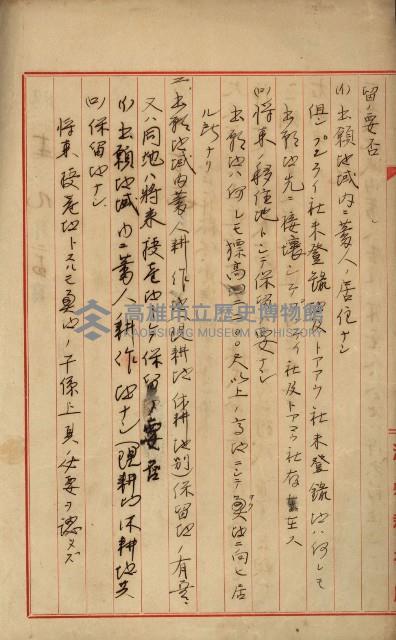 留ノ要否
(イ)出願地域内ニ蕃人ノ居住ナシ
但シブンライ社未登録地及トアアウ社未登録地ハ何レモ
出願地先ニ接壌シテライ社及トアアウ社存在ス
(ロ)将来ノ移住地トシテ保留ノ要ナシ
出願地ハ何レモ標高三〇〇〇尺以上ノ高地ニシテ蕃地ニ向ヒ居
ル所ナリ
二、出願地域内蕃人耕作地(現耕地休耕地別)保留地ノ有無、
又ハ同地ハ将来授産地トシテ保留ノ要否
(イ)出願地域内ニ蕃人ノ耕作地ナシ(現耕地休耕地共
(ロ)保留地ナシ
将来授産地トスルモ地ノ干係上其ノ必要ヲ認メズ
高雄市立歷史博物館
KAOHSIUNG MUSEUM OF HISTORY